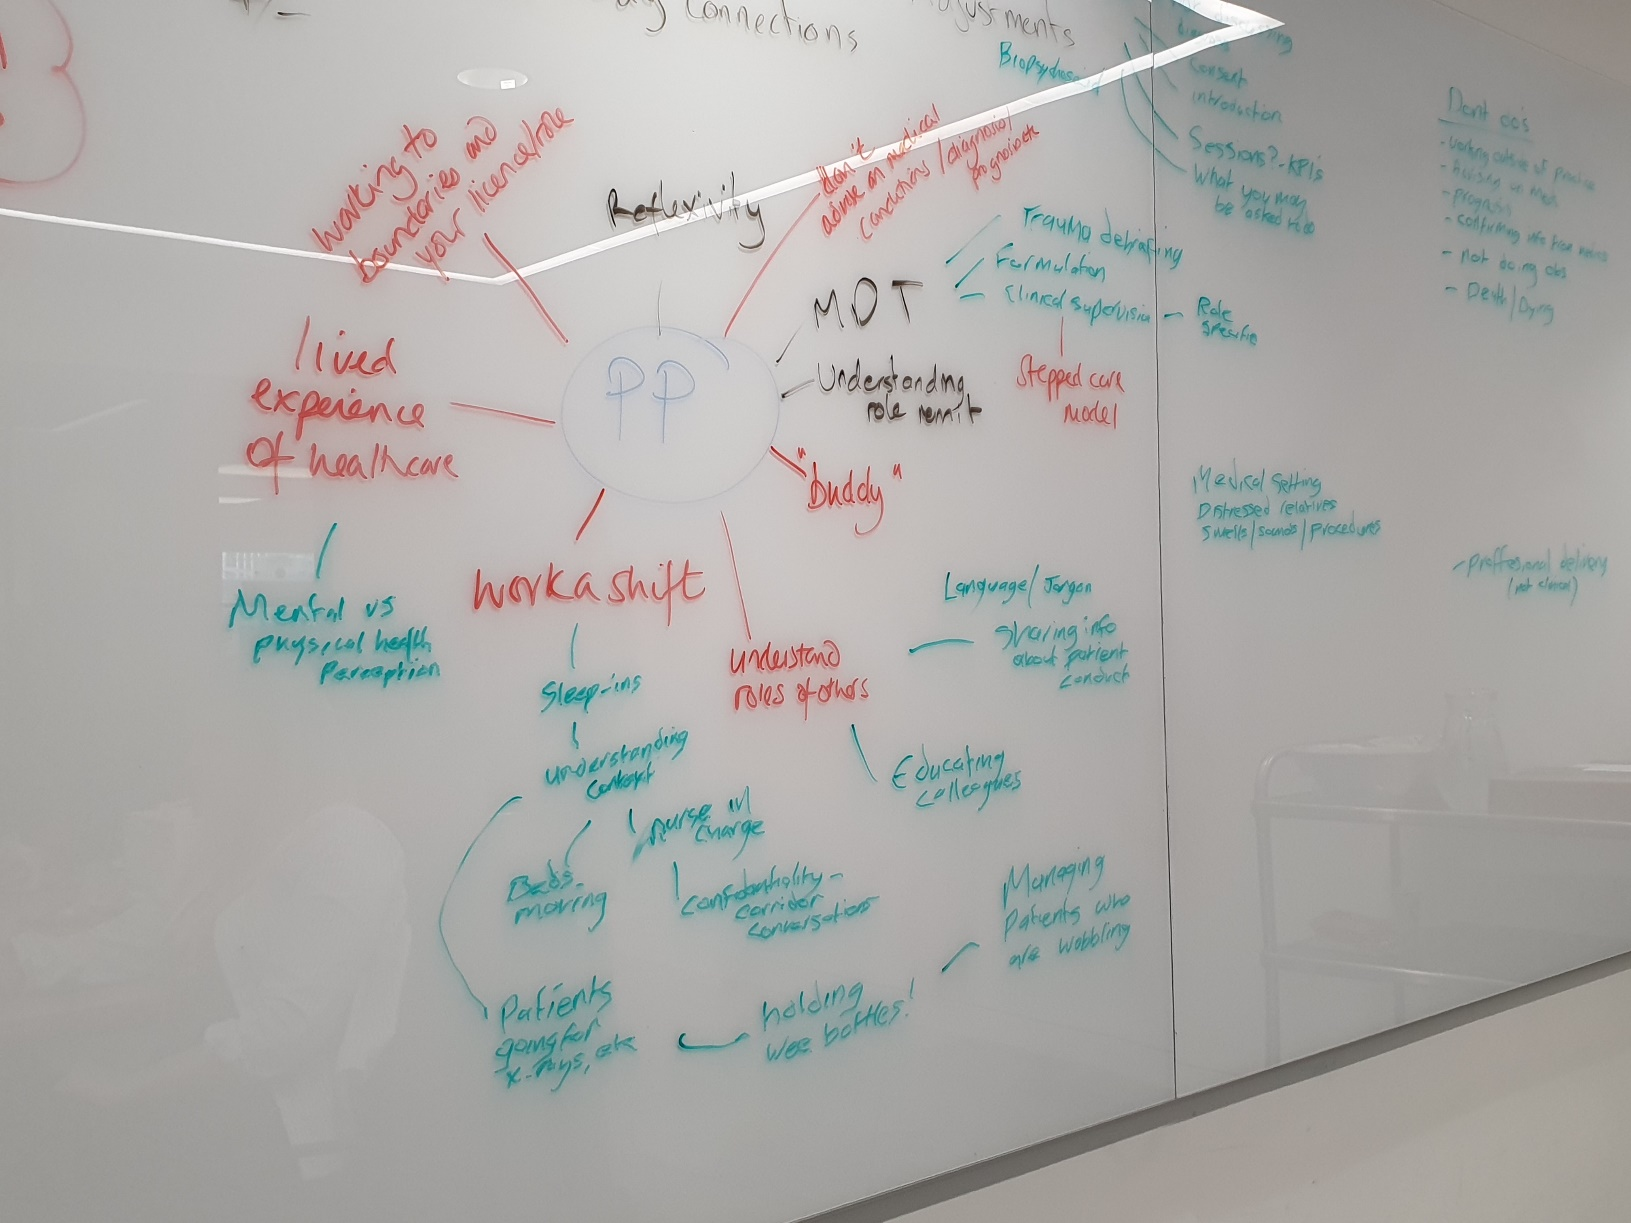 Connections
Adjustments
Biopsychosocial
Consent
introduction
Sessions? - KPI's
What you may
be asked to do
Dont do's
- working outside of practice
- Advising on meds
- prognosis
- confirming info from notes
- not doing obs
- Death/Dying
working to
boundaries and
your licence/role
Reflexivity
don't
advise on medical
conditions/diagnosis/
prognosis etc
MDT
Trauma debriefing
Formulation
Clinical supervision - Role
specific
Stepped care
model
Understanding
role remit
"buddy"
PP
lived
experience
of healthcare
Mental vs
physical health
perception
work a shift
Sleep-ins
understanding
context
Nurse in
charge
Beds
moving
Confidentiality -
corridor
conversations
Patients
going for
x-rays, etc
holding
wee bottles!
Managing
patients who
are wobbling
understand
roles of others
Language/Jargon
Sharing info
about patient
conduct
Educating
colleagues
Medical setting
Distressed relatives
Smells/sounds/procedures
- proffesional delivery
(not clinical)